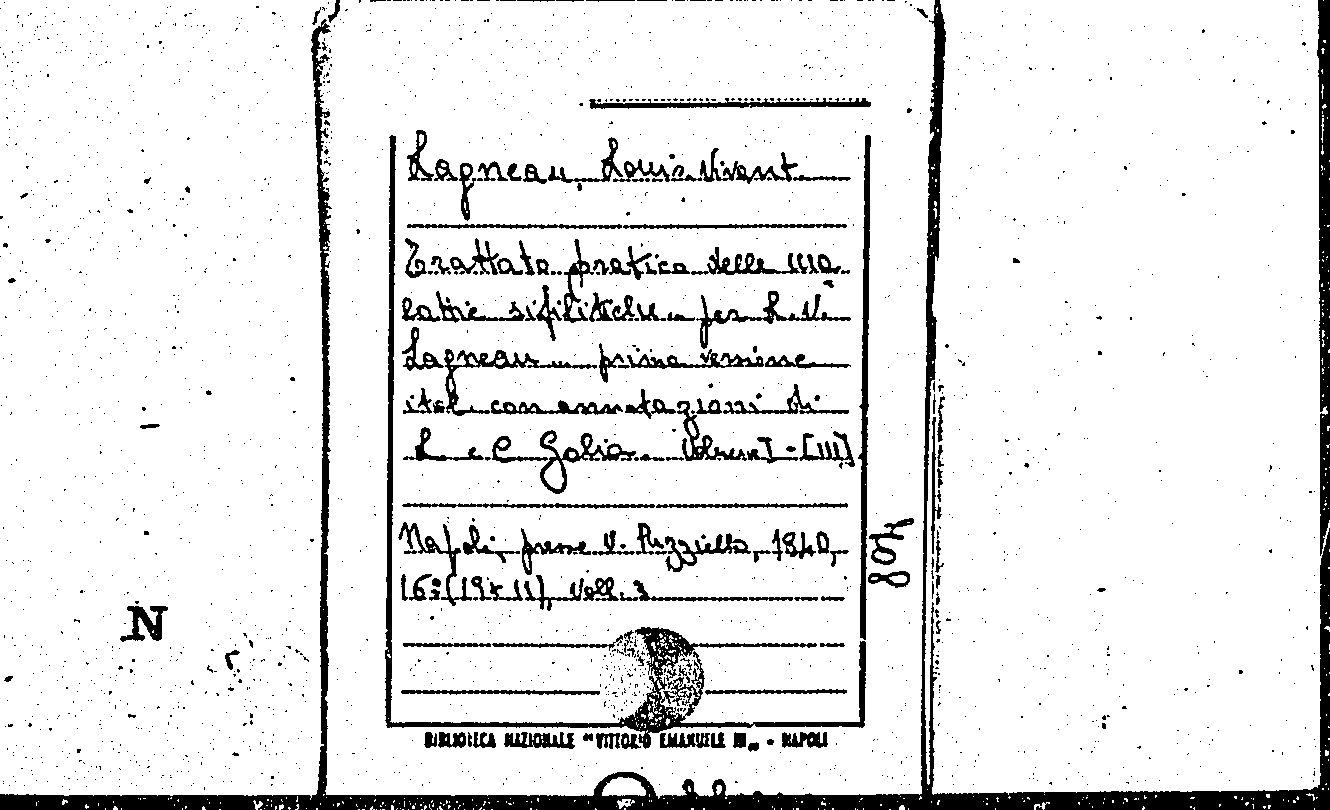 Lagneau, Louis Vivant.
Trattato pratico delle ma
lattie sifilitiche .. per L. V.
Lagneau ... prima versione
ital. con annotazioni di
L. e C. Golia. Volume I - [III]
Napoli, presso V. Puzziello, 1840,
16° (19 x 11), Voll. 3
BIBLIOTECA NAZIONALE "VITTORIO EMANUELE III" - NAPOLI
N